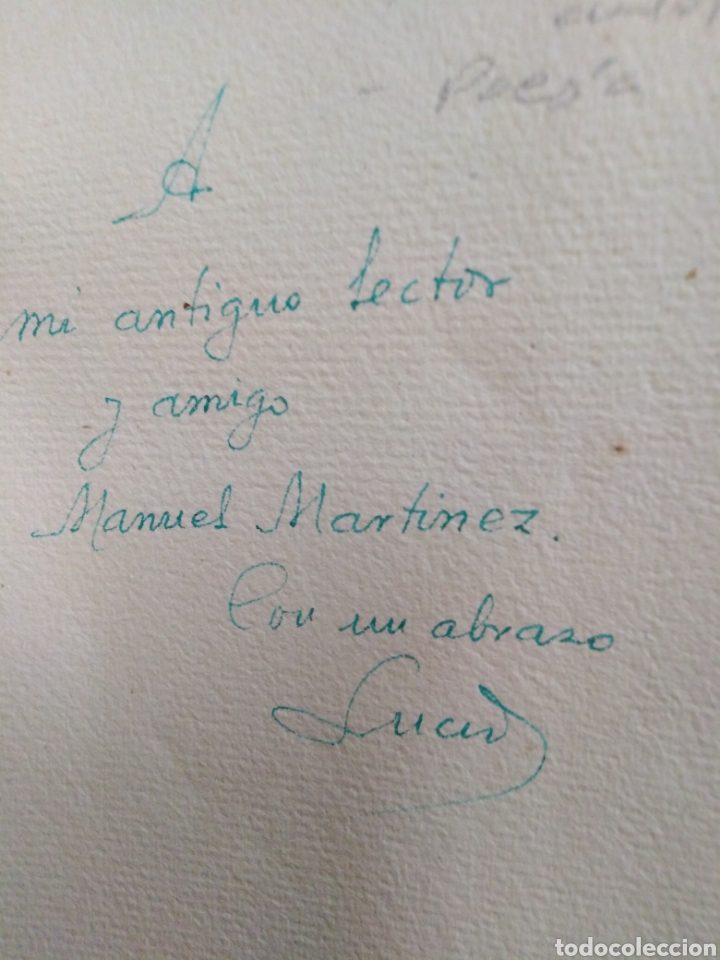 - Poesía
A
mi antiguo lector
y amigo
Manuel Martinez.
Con un abrazo
todocoleccion